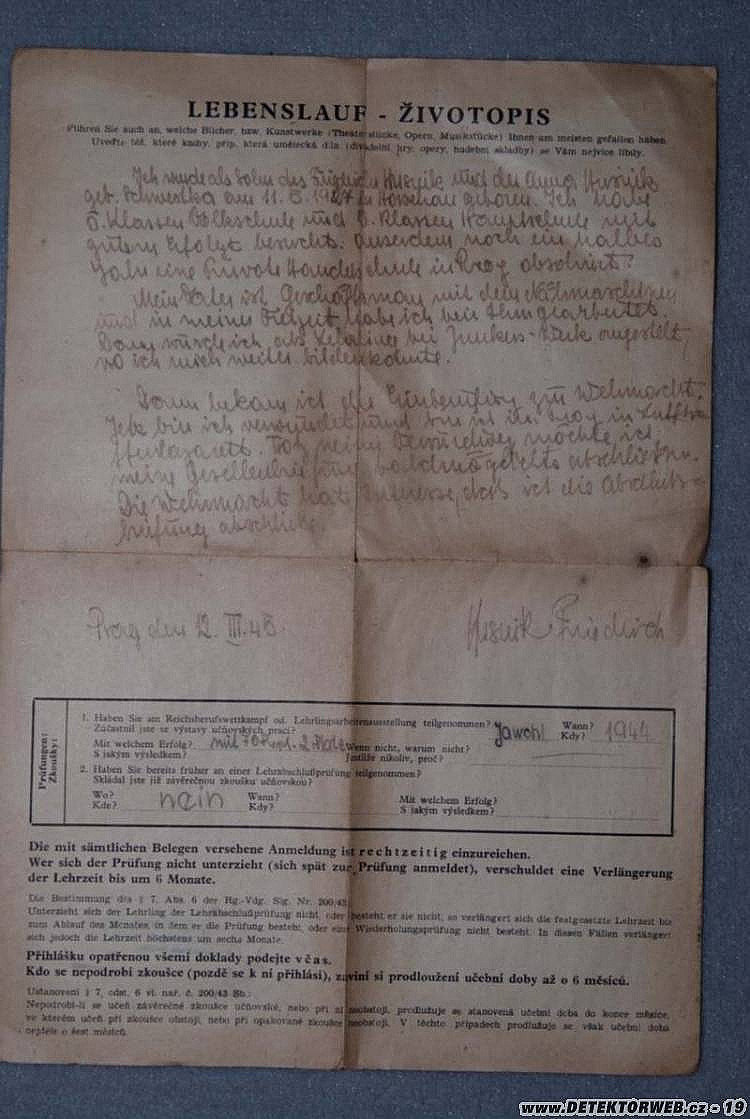 LEBENSLAUF - ŽIVOTOPIS
Führen Sie auch an, welche Bücher, bzw. Kunstwerke (Theaterstücke, Opern, Musikstücke) Ihnen am meisten gefallen haben.
Uveďte též, které knihy, příp. která umělecká díla (divadelní hry, opery, hudební skladby) se Vám nejvíce líbily.
Ich wurde als Sohn des Husnik und der Anna Husnik
geb. am 11. geboren. Ich habe
5. Klassen Volksschule und Klassen Hauptschule mit
gutem Erfolg besucht. Ausserdem noch ein halbes
Jahr eine Private Handelsschule in Prag absolviert.
Mein Vater ist Geschäftsman mit den Nähmaschinen
und in meiner Freizeit habe ich bei ihm gearbeitet.
Dann wurde ich als bei Junkers angestellt,
wo ich mich weiter bilden konnte.
Dann bekam ich die Einberufung zu Wehrmacht.
Jetz bin ich verwundet und in
meine möchte ich
meine baldmöglichts abschliessen.
Die Wehrmacht hat Interesse, daß ich die
prüfung
Prag den 12. III. 45.
Husnik Friedrich
Prüfungen:
Zkoušky:
1. Haben Sie am Reichsberufswettkampf od. Lehrlingsarbeitenausstellung teilgenommen? Jawohl Wann? 1944
Zúčastnil jste se výstavy učňovských prací? Kdy?
Mit welchem Erfolge? mit Wenn nicht, warum nicht?
S jakým výsledkem? Jestliže nikoliv, proč?
2. Haben Sie bereits früher an einer Lehrabschlußprüfung teilgenommen?
Skládal jste již závěrečnou zkoušku učňovskou?
Wo? nein Wann? Mit welchem Erfolg?
Kde? Kdy? S jakým výsledkem?
Die mit sämtlichen Belegen versehene Anmeldung ist rechtzeitig einzureichen.
Wer sich der Prüfung nicht unterzieht (sich spät zur Prüfung anmeldet), verschuldet eine Verlängerung
der Lehrzeit bis um 6 Monate.
Die Bestimmung des § 7, Abs. 6 der Rg.-Vdg. Slg. Nr. 200/43:
Unterzieht sich der Lehrling der Lehrabschlußprüfung nicht, oder besteht er sie nicht, so verlängert sich die festgesetzte Lehrzeit bis
zum Ablauf des Monates, in dem er die Prüfung besteht, oder eine Wiederholungsprüfung nicht besteht. In diesen Fällen verlängert
sich jedoch die Lehrzeit höchstens um sechs Monate.
Přihlášku opatřenou všemi doklady podejte včas.
Kdo se nepodrobí zkoušce (pozdě se k ní přihlásí), zaviní si prodloužení učební doby až o 6 měsíců.
Ustanovení § 7, odst. 6 vl. nař. č. 200/43 Sb.:
Nepodrobí-li se učeň závěrečné zkoušce učňovské, nebo při ní neobstojí, prodlužuje se stanovená učební doba do konce měsíce,
ve kterém učeň při zkoušce obstojí, nebo při opakované zkoušce neobstojí. V těchto případech prodlužuje se však učební doba
nejdéle o šest měsíců.
www.DETEKTORWEB.cz - 19